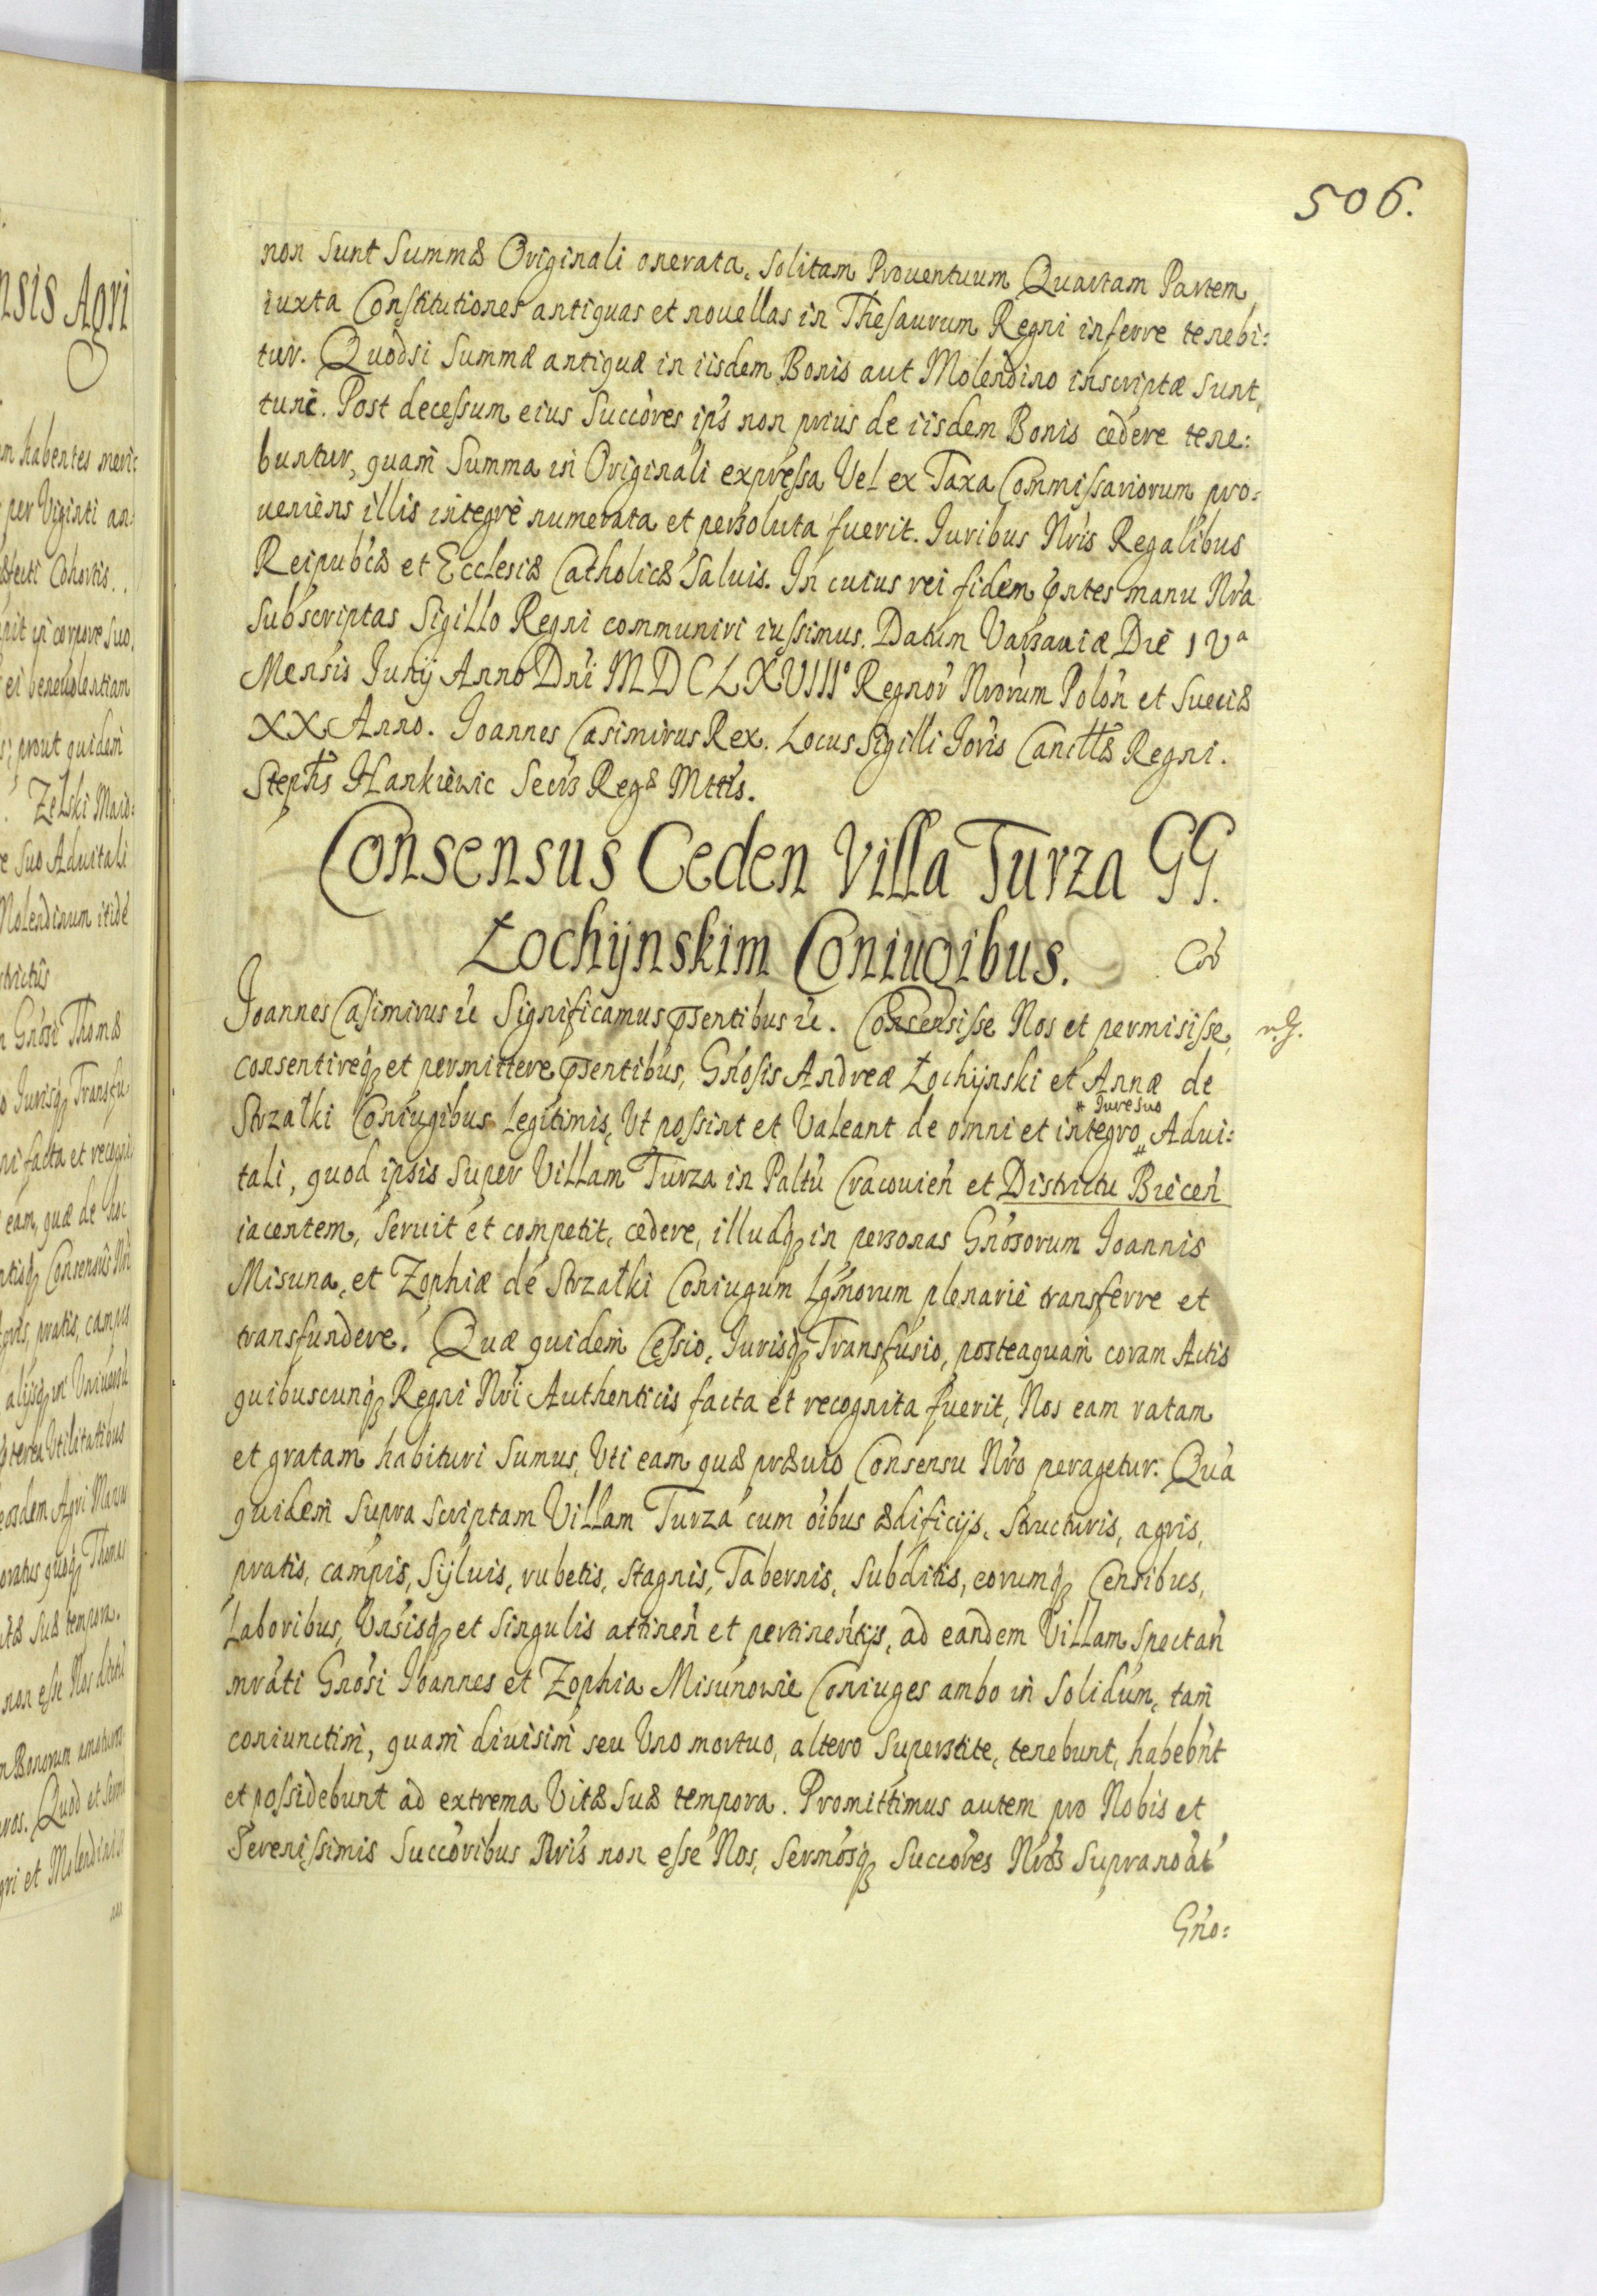 506.
non sunt Summæ Originali onerata, solitam Prouentuum Quartam Partem
iuxta Constitutiones antiquas et nouellas in Thesaurum Regni inferre tenebi:
tur. Quodsi Summæ antiquæ in iisdem Bonis aut Molendino inscriptæ sunt,
tunc. Post decessum eius Succòres ips̃ non prius de iisdem Bonis cedere tene:
buntur, quam Summa in Originali expressa Vel ex Taxa Commissariorum pro:
ueniens illis integrè numerata et persoluta fuerit. Iuribus Nris Regalibus
Reipubcæ et Ecclesiæ Catholicæ Saluis. In cuius rei fidem pntes manu Nra
Subscriptas Sigillo Regni communiri iussimus. Datum Varsauiæ Die IVa
Mensis Iunij Anno Dni MDCLXVIII° Regnor Nrorum Polon et Sueciæ
XX Anno. Joannes Casimirus Rex. Locus Sigilli Ioris Cancttæ Regni.
Stephs Hankiewic Secrs Regæ Mttis.
Consensus Ceden Villa Turza GG.
Łochijnskim Coniugibus.
Cor
Joannes Casimirus &c Significamus psentibus &c. Consensisse Nos et permisisse,
consentireq et permittere psentibus, Gnosis Andreæ Łochijnski et Annæ de
* Iure suo
Strzałki Coniugibus Legitimis, Vt possint et Valeant de omni et integro Adui:
tali, quod ipsis super Villam Turza in Paltu Cracouien et Districtu Biecen
iacentem, seruit et competit, cedere, illudq in personas Gnosorum Joannis
Misuna, et Zophiæ de Strzałki Coniugum Lgmorum plenarie transferre et
transfundere. Quæ quidem Cessio, Iurisq Transfusio, posteaquam coram Actis
quibuscunq Regni Nri Authenticis facta et recognita fuerit, Nos eam ratam
et gratam habituri Sumus, Vti eam quæ præuio Consensu Nro peragetur. Qua
quidem supra scriptam Villam Turza cum oibus ædificijs, structuris, agris,
pratis, campis, Syluis, rubetis, stagnis, Tabernis, subditis, eorumq Censibus,
Laboribus, Vnsisq et singulis attinen et pertinentijs, ad eandem Villam spectan
mrati Gnosi Joannes et Zophia Misunowie Coniuges ambo in solidum, tam
coniunctim, quam diuisim seu Vno mortuo, altero superstite, tenebunt, habebnt
et possidebunt ad extrema Vitæ suæ tempora. Promittimus autem pro Nobis et
Serenissimis Succoribus Nris non esse Nos, Sermosq Succores Nros supranoat
Gno: